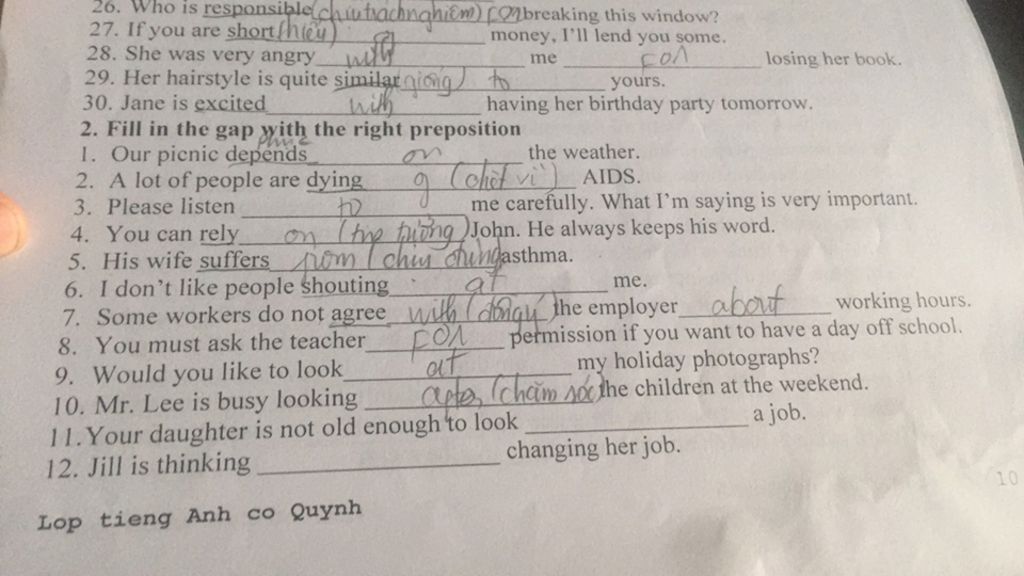 26. Who is responsible (chịu trách nghiệm) for breaking this window?
27. If you are short (thiếu) ____ money, I'll lend you some.
28. She was very angry with me for losing her book.
29. Her hairstyle is quite similar (giống) to yours.
30. Jane is excited with having her birthday party tomorrow.
2. Fill in the gap with the right preposition
1. Our picnic depends on the weather.
2. A lot of people are dying (chết vì) AIDS.
3. Please listen to me carefully. What I'm saying is very important.
4. You can rely on John. He always keeps his word.
5. His wife suffers from (chịu đựng) asthma.
6. I don't like people shouting at me.
7. Some workers do not agree with (đồng ý) the employer about working hours.
8. You must ask the teacher for permission if you want to have a day off school.
9. Would you like to look at my holiday photographs?
10. Mr. Lee is busy looking after (chăm sóc) the children at the weekend.
11. Your daughter is not old enough to look ____ a job.
12. Jill is thinking ____ changing her job.
10
Lop tieng Anh co Quynh